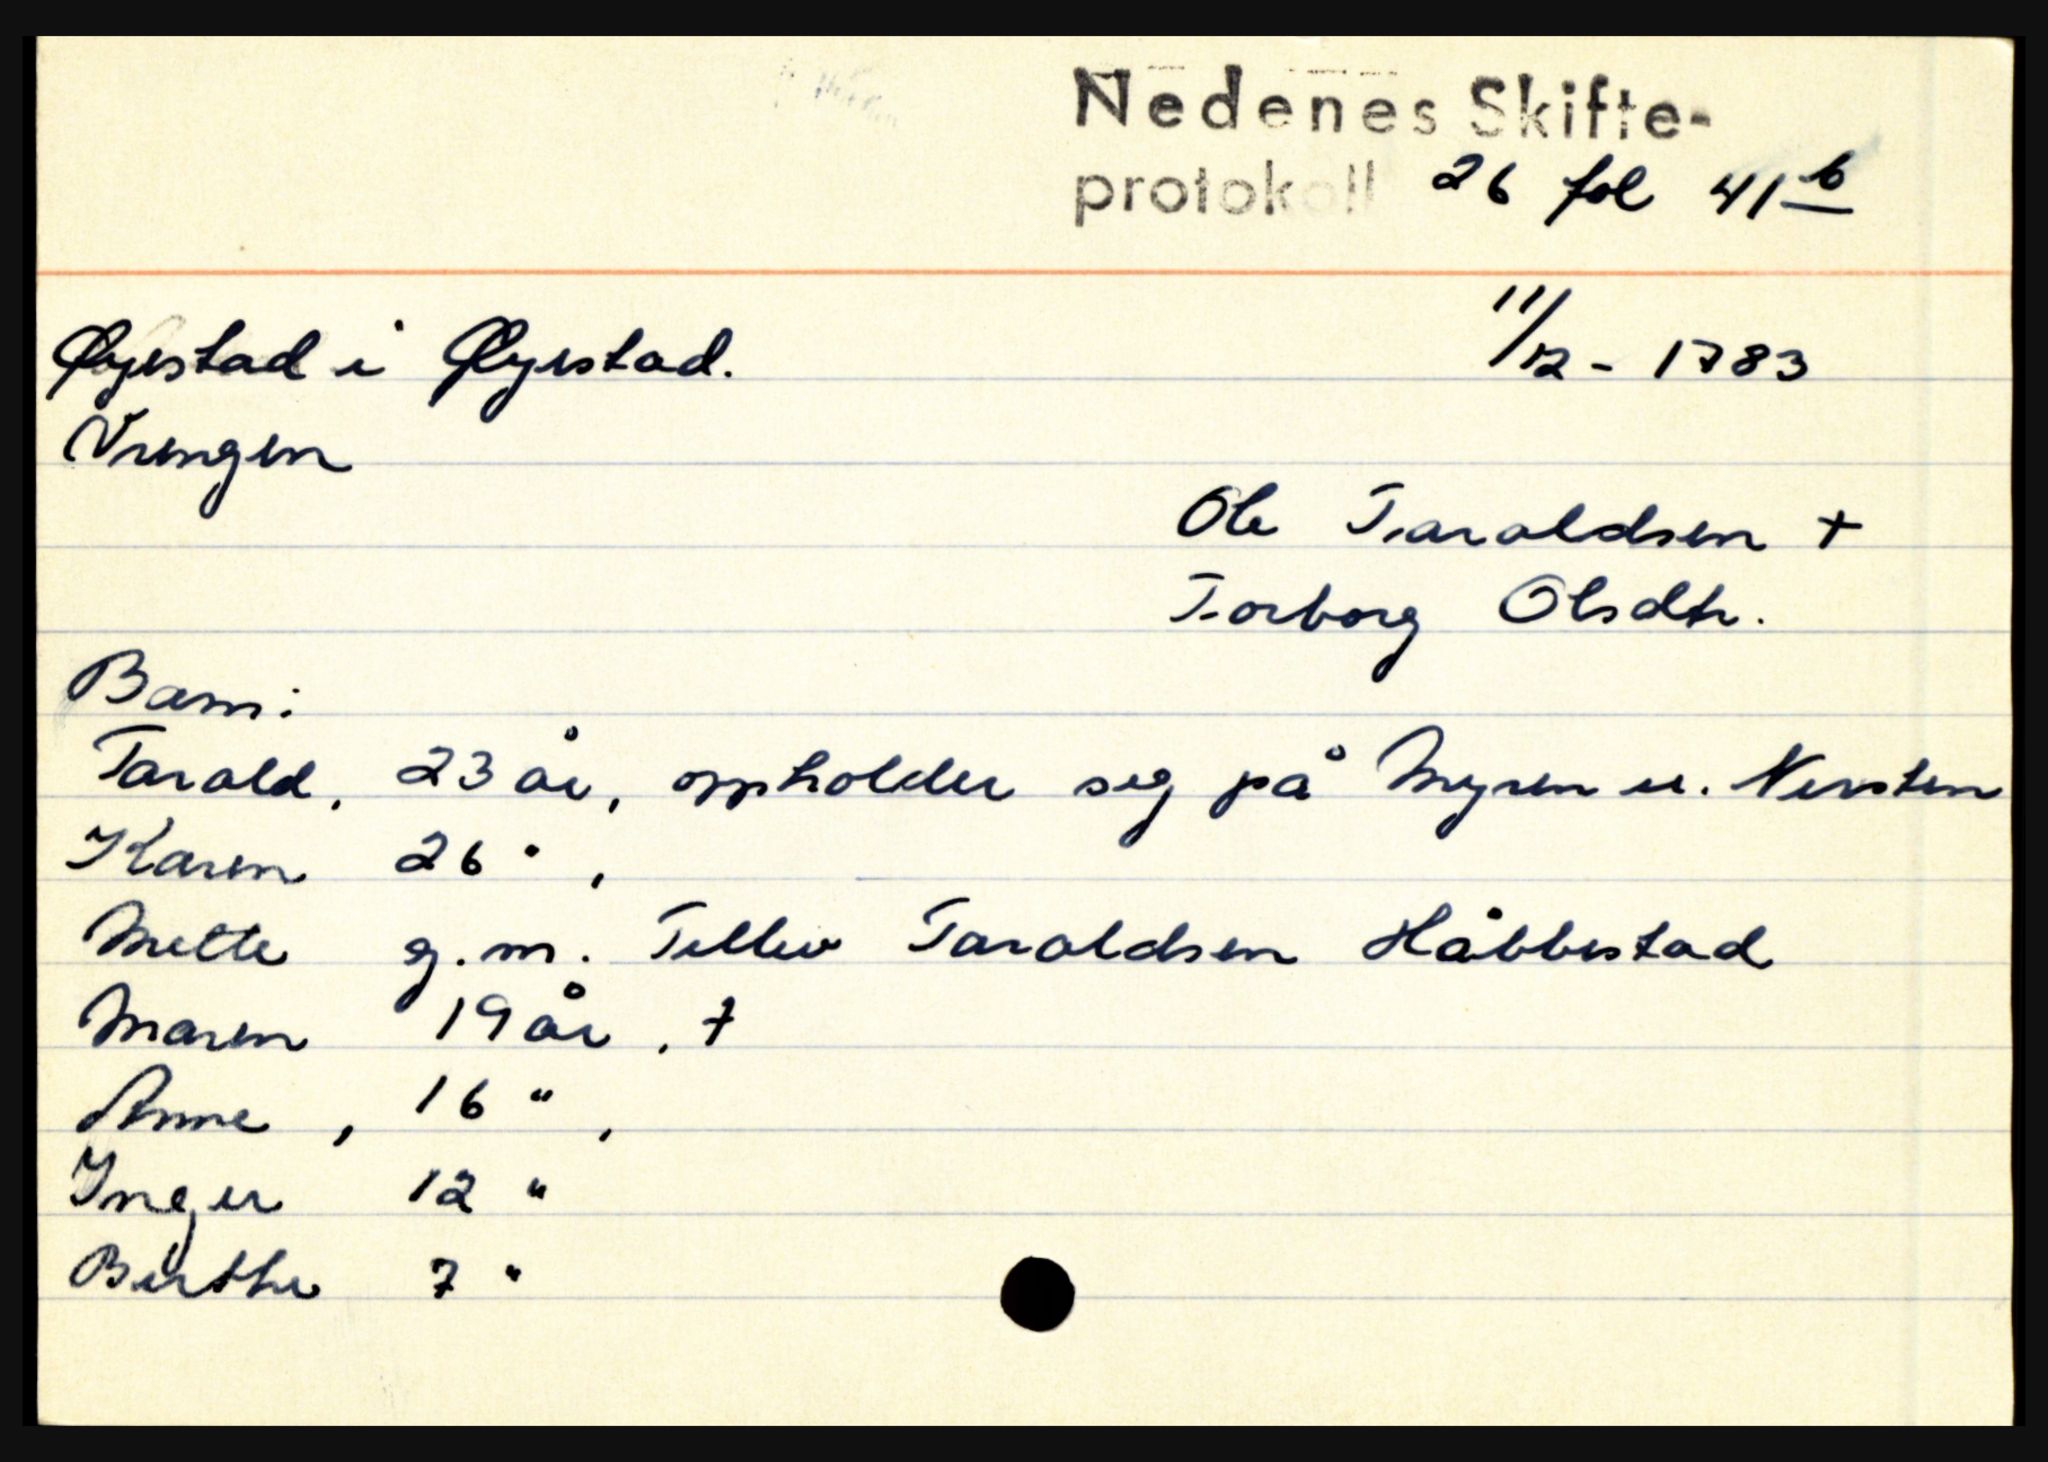 Nedenes Skifte-
protokoll 26 fol 41 b
Øyestad i Øyestad. 11/12 - 1783
Vrengen
Ole Taraldsen +
Torborg Olsdtr.
Barn:
Tarald, 23 år, oppholder seg på Myren u. Nersten
Karen 26 " ,
Mette g.m. Tellev Taraldsen Håbbestad
Maren 19 år, +
Anne, 16 " ,
Inger 12 "
Berthe 7 "